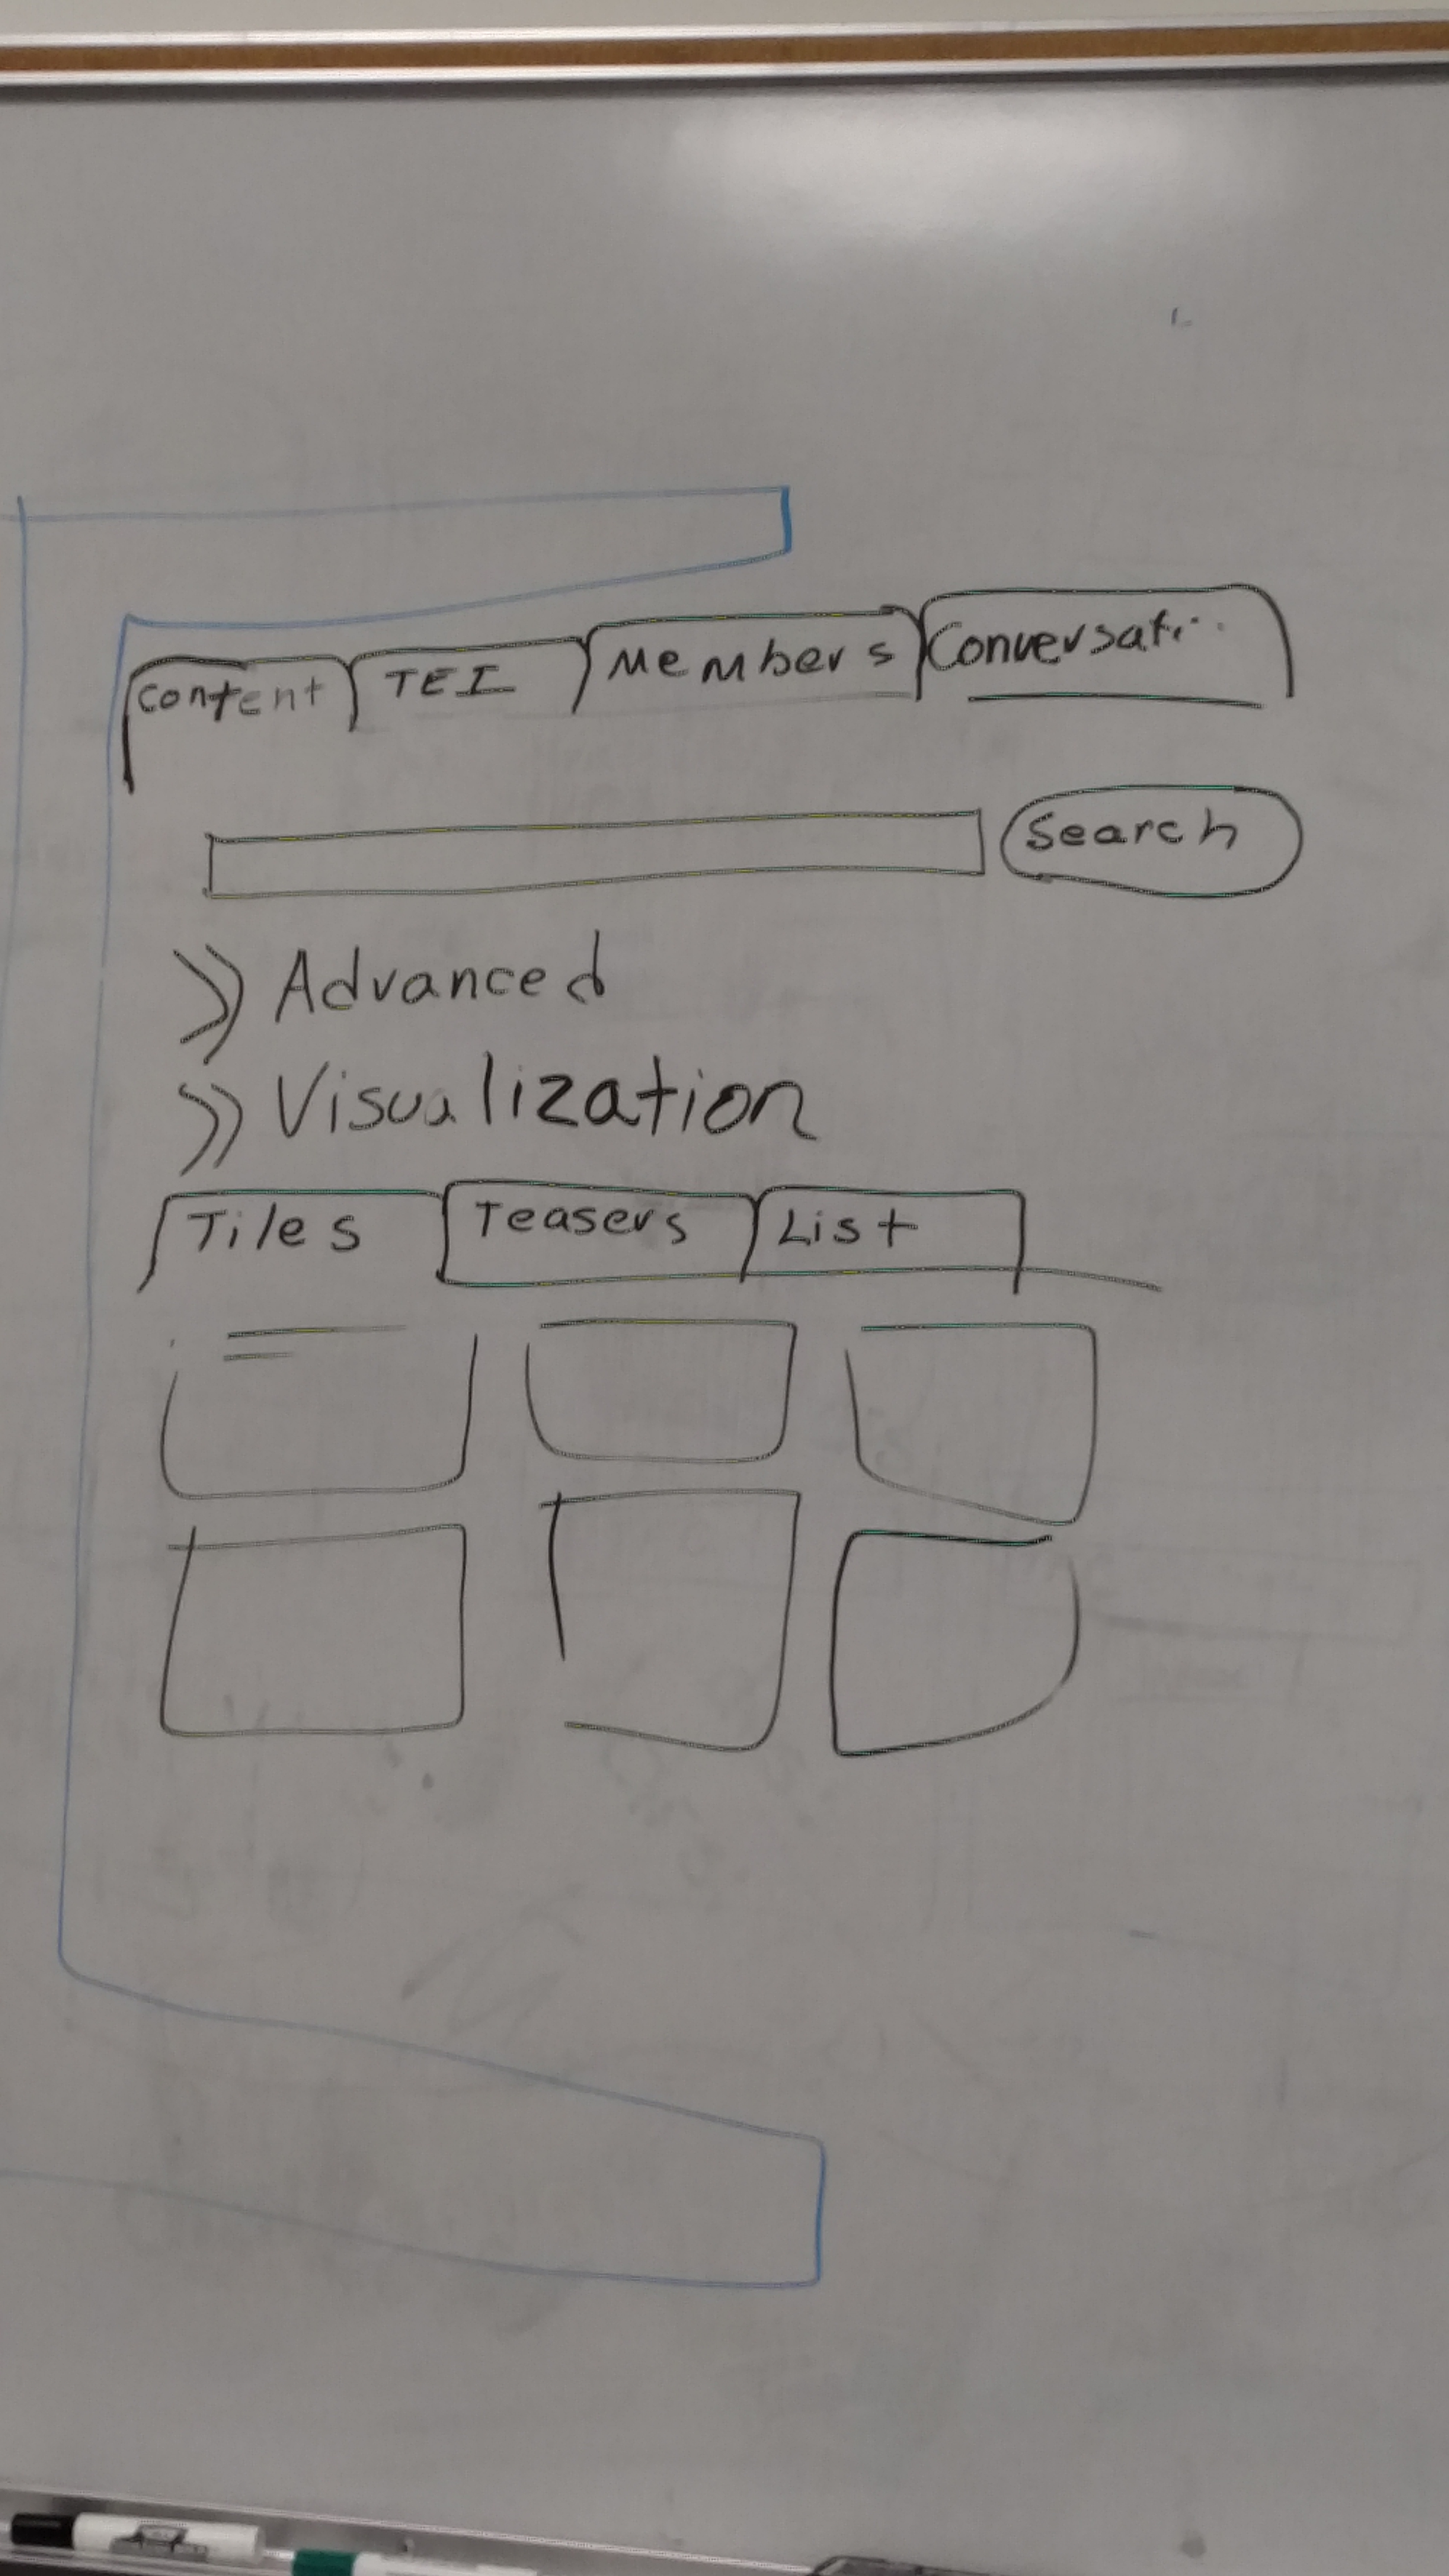 Content TEI Members Conversati..
Search
>> Advanced
>> Visualization
Tiles Teasers List